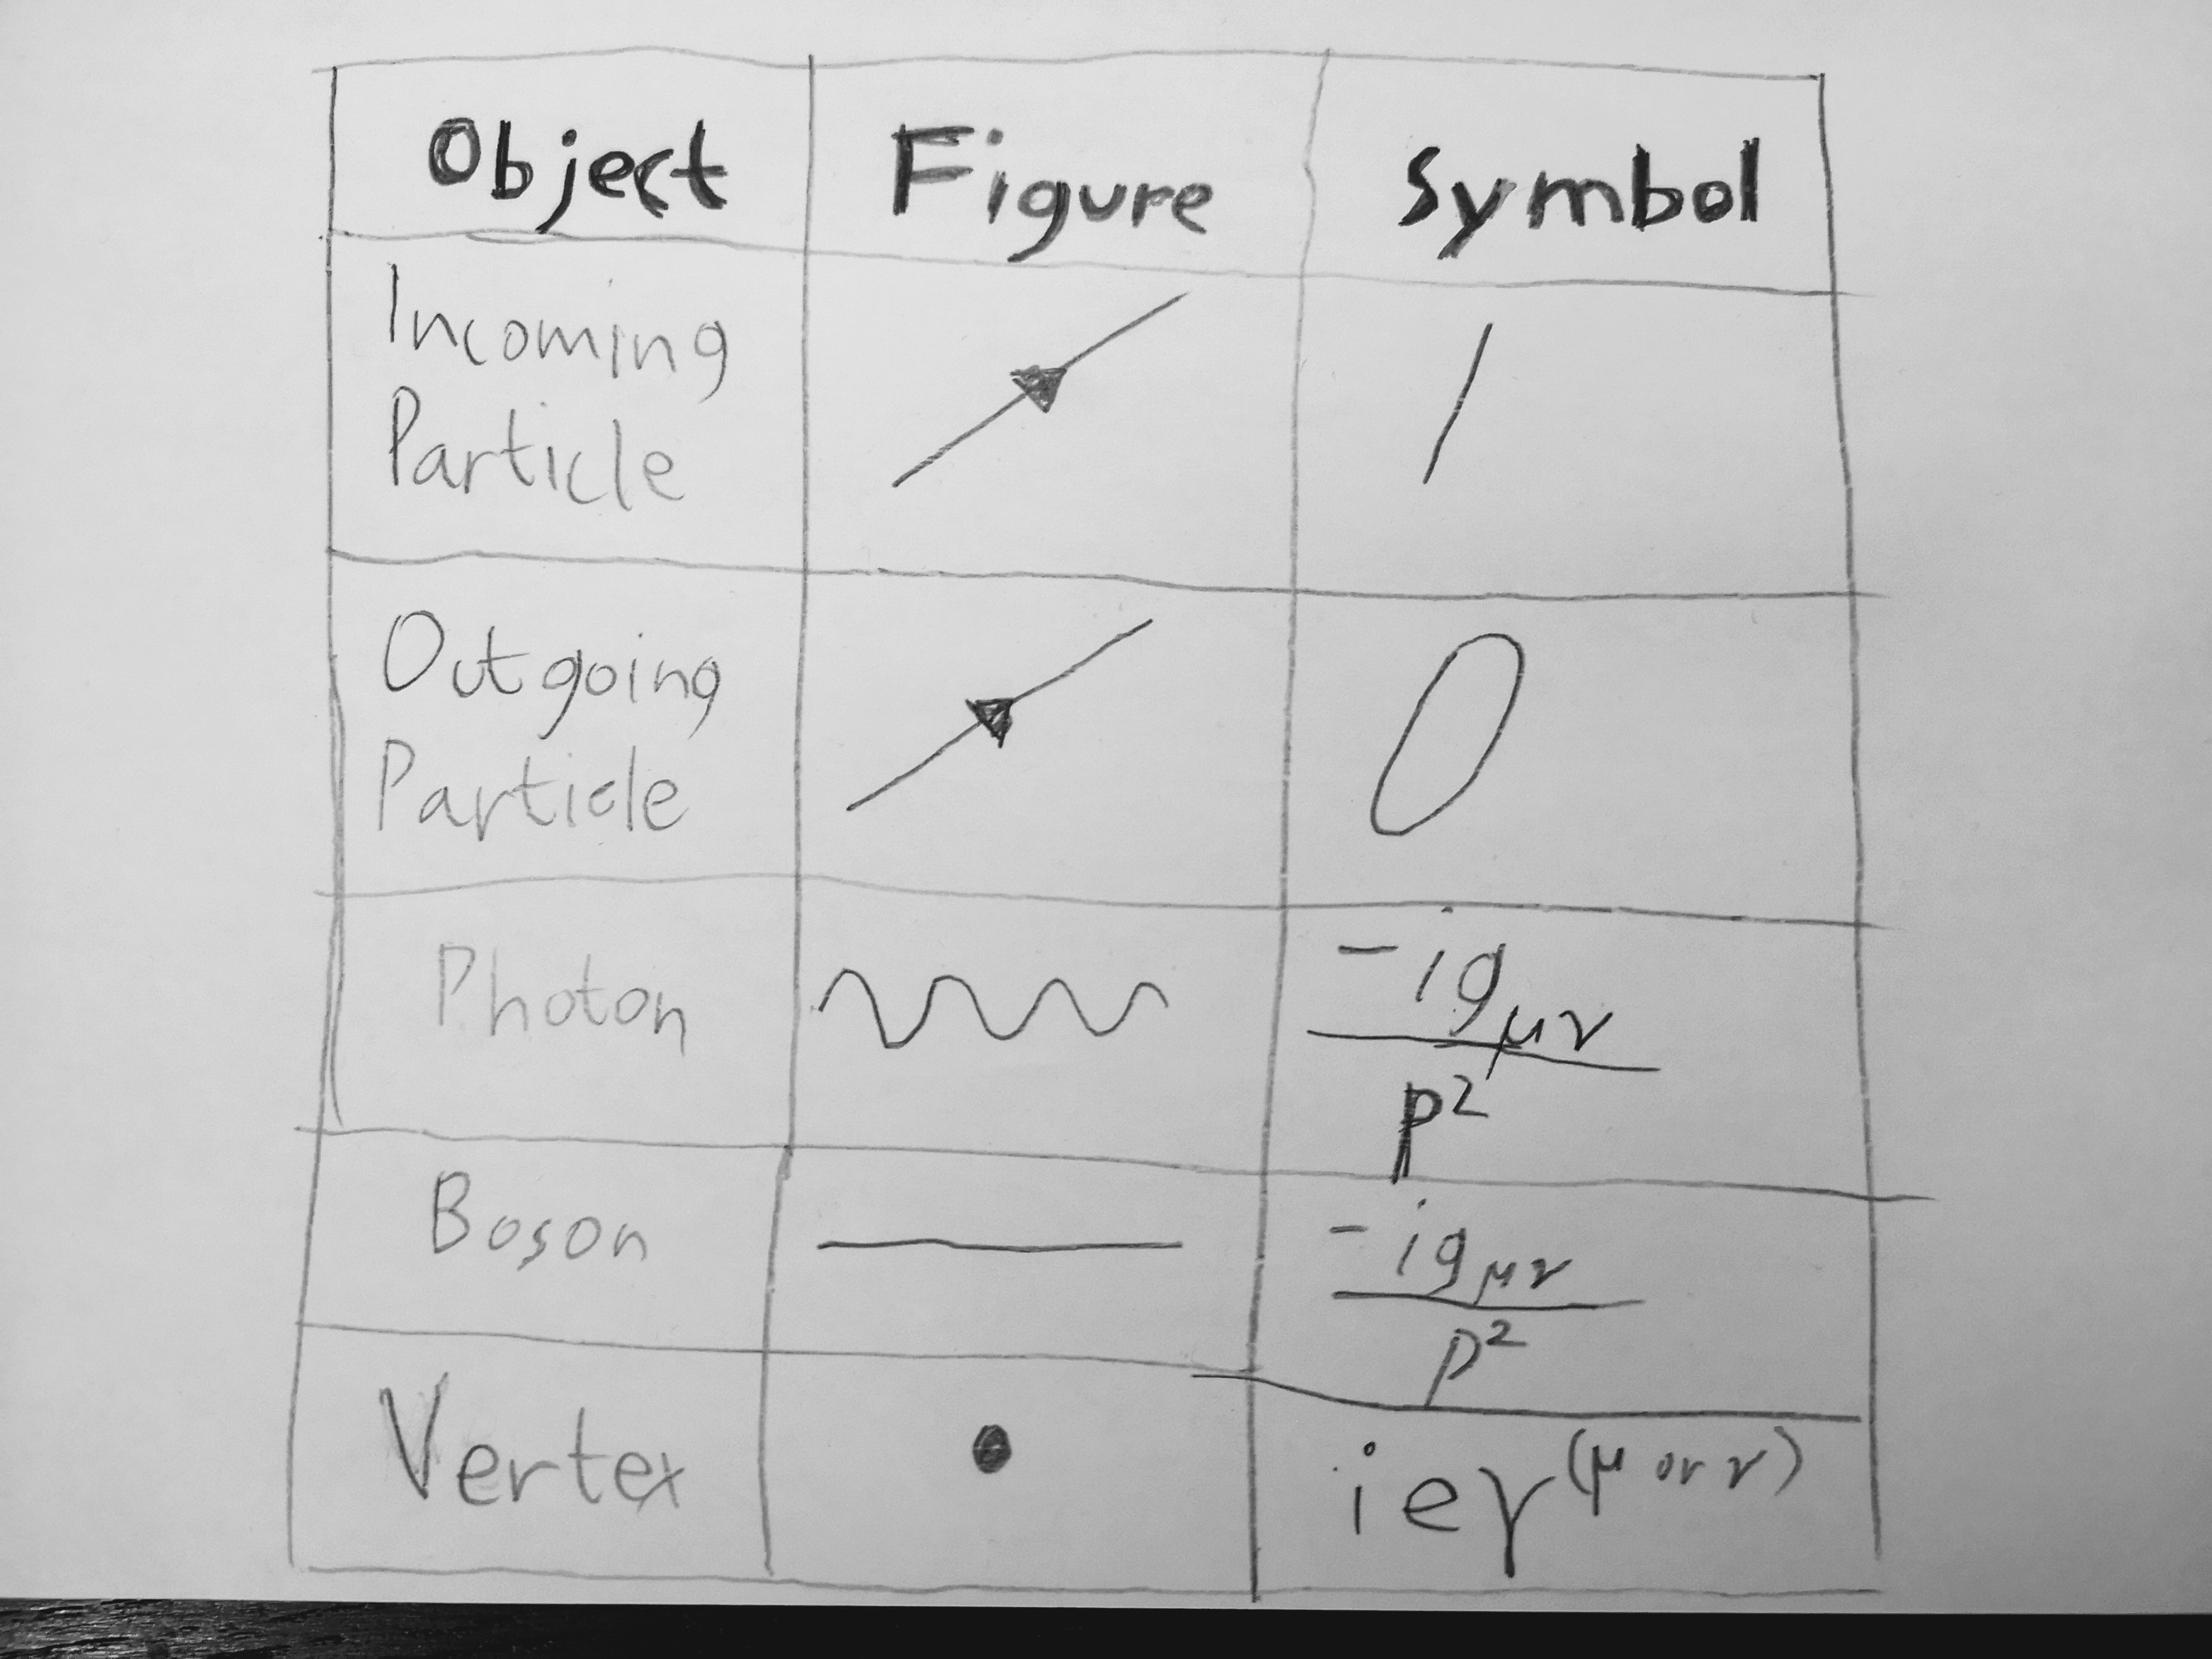 Object Figure Symbol
Incoming
Particle
/
Outgoing
Particle
0
Photon
-ig_μν
p²
Boson
-ig_μν
p²
Vertex
ieγ^(μ or ν)